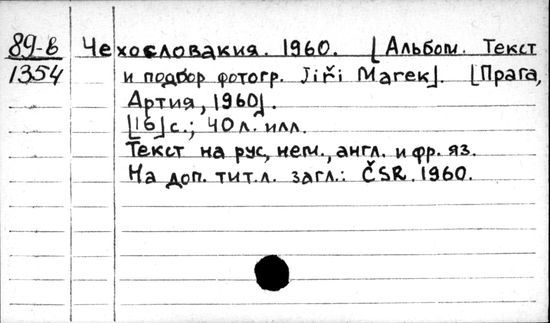 89-в Чехословакия. 1960. [Альбом. Текст
1354 и подбор фотогр. Jiři Marek]. [Прага,
Артия, 1960].
[16] с.; 40 л. илл.
Текст на рус, нем., англ. и фр. яз.
На доп. тит.л. загл.: ČSR. 1960.